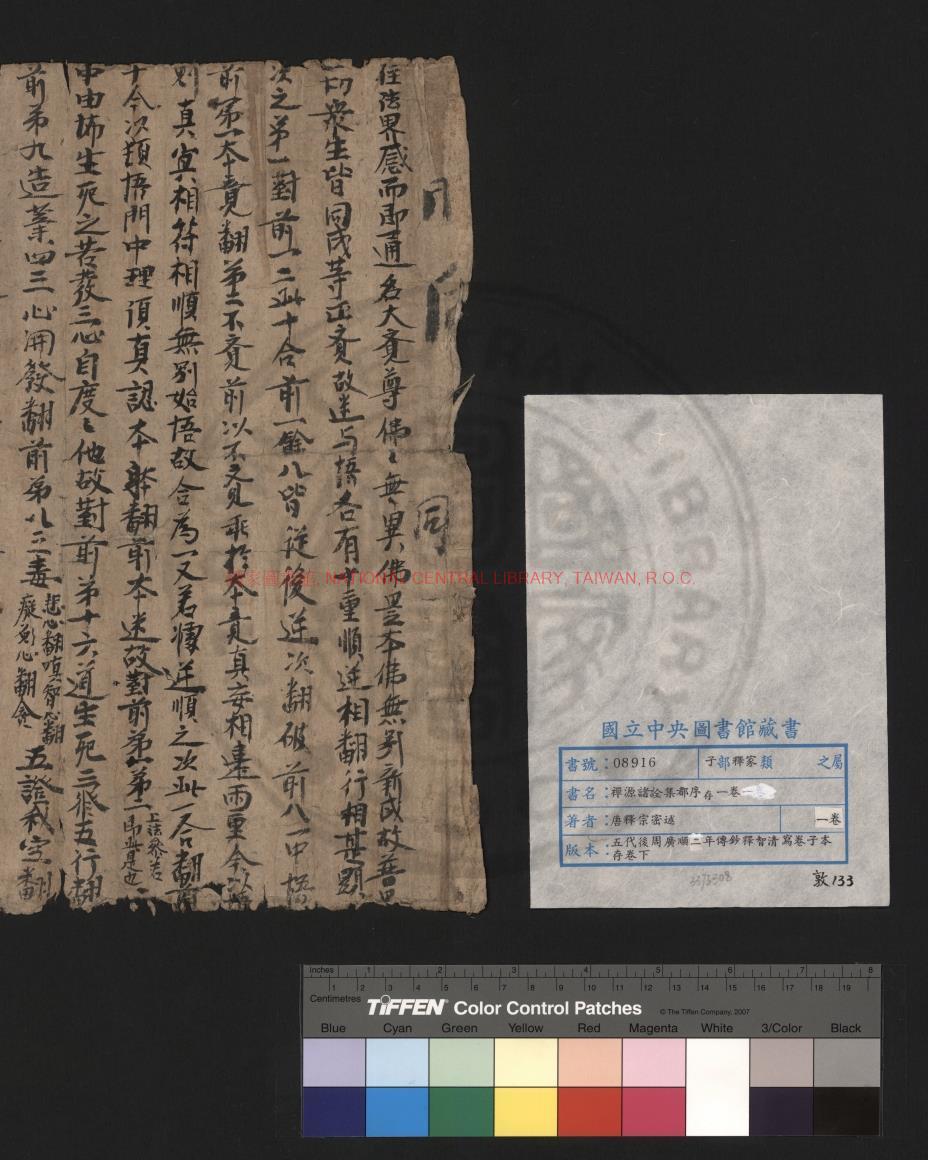 同
同
往法界感而即通名大覺尊佛〻無異佛是本佛無別新成故普見
一切衆生皆同成等正覺故迷与悟各有十重順逆相翻行相甚顯
次之第一對前一二此十合前一餘八皆從後逆次翻破前八一中悟
前第一本覺翻第二不覺前以不覺乖於本覺真妄相違兩重今以悟
則真冥相符相順無別始悟故合為一又若據逆順之次此一合翻前
十今以頓悟門中理須真認本躰翻前本迷故對前第一第二上法卷若即此是也二
中由怖生死之苦發三心自度〻他故對前第十六道生死三修五行翻
前第九造業四三心開發翻前第八三毒悲心翻嗔智心翻癡願心翻貪五證我空翻
國立中央圖書館藏書
書號：08916 子部釋家類 之屬
書名：禪源諸詮集都序存一卷 一卷
著者：唐釋宗密述
版本：五代後周廣順二年傳鈔釋智清寫卷子本 存卷下
3373308
敦133
國家圖書館, NATIONAL CENTRAL LIBRARY, TAIWAN, R.O.C.
LIBRARY
inches 1 2 3 4 5 6 7 8
1 2 3 4 5 6 7 8 9 10 11 12 13 14 15 16 17 18 19
Centimetres TIFFEN Color Control Patches © The Tiffen Company, 2007
Blue Cyan Green Yellow Red Magenta White 3/Color Black